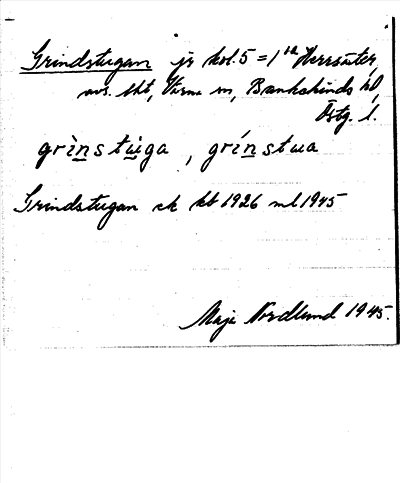 Grindstugan jr kol. 5 = 1 ᵗᵃ Herrsäter,
avs. tht, Värna sn, Bankekinds hd,
Östg. l.
grìnstùga, grínstua
Grindstugan ek kb 1926 ml 1945
Maja Nordlund 1945.